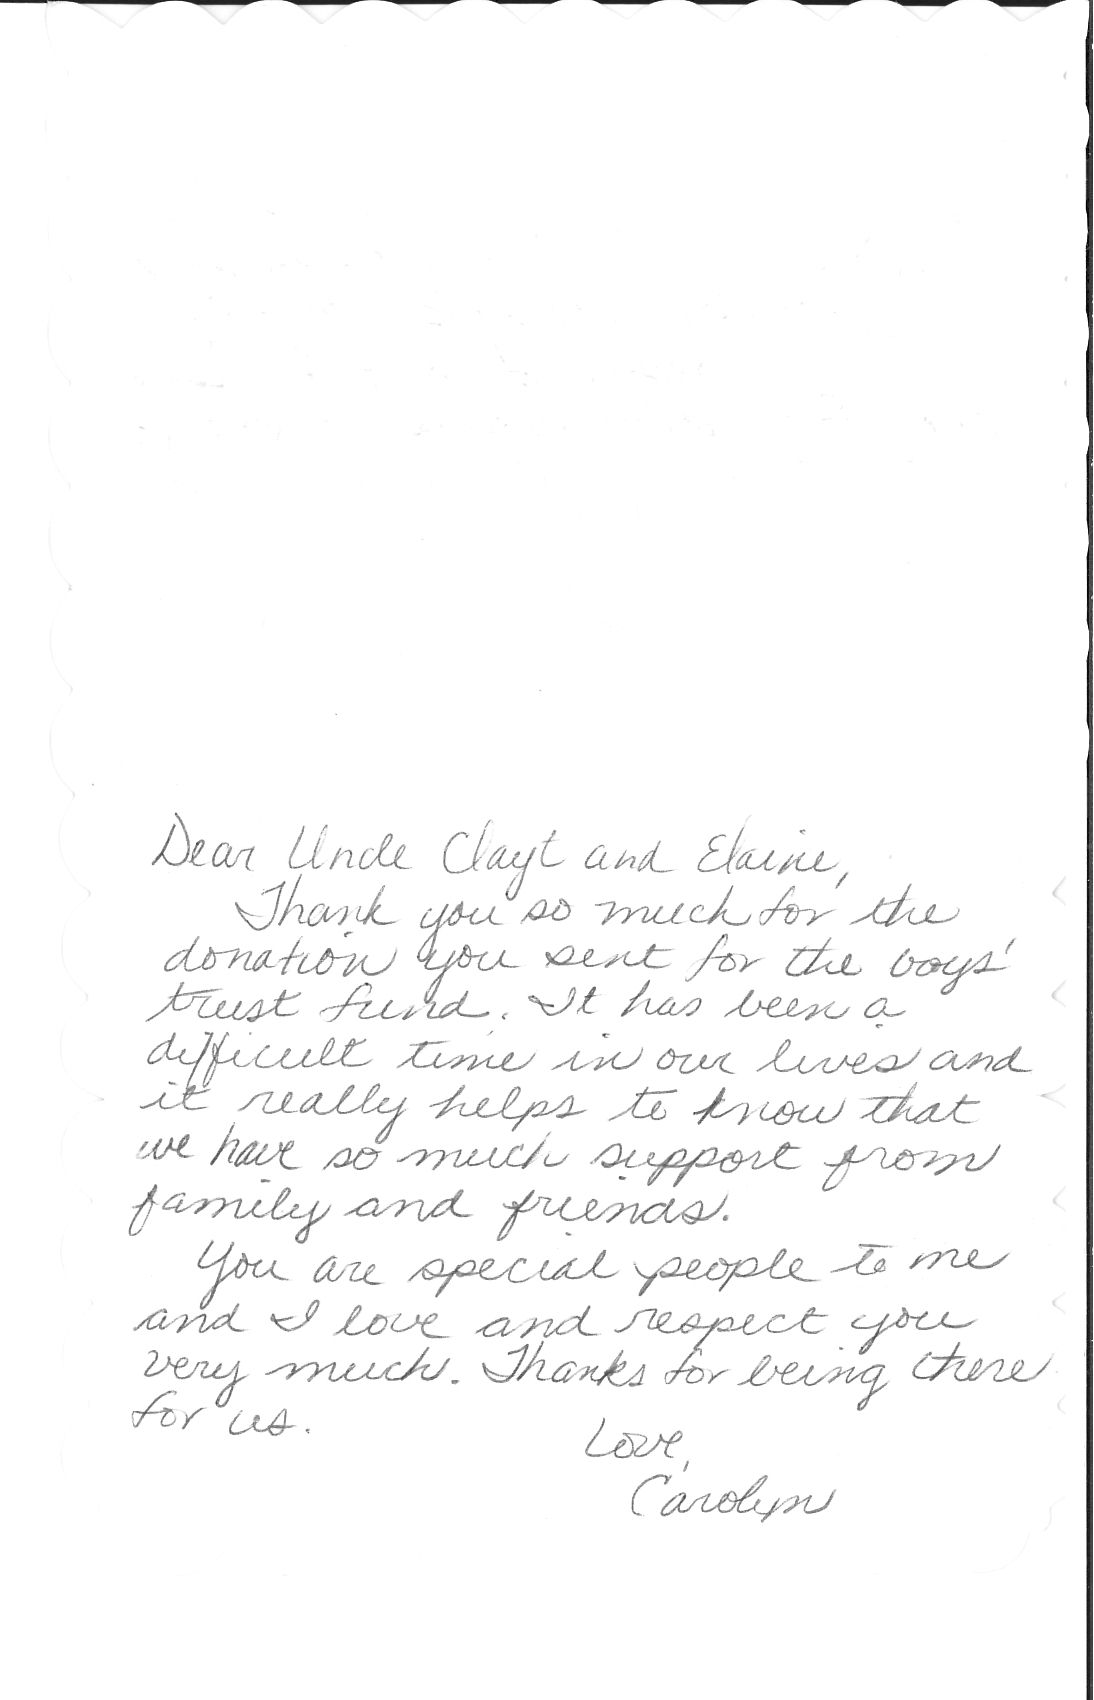 Dear Uncle Clayt and Elaine,
Thank you so much for the
donation you sent for the boys'
trust fund. It has been a
difficult time in our lives and
it really helps to know that
we have so much support from
family and friends.
You are special people to me
and I love and respect you
very much. Thanks for being there
for us.
Love,
Carolyn